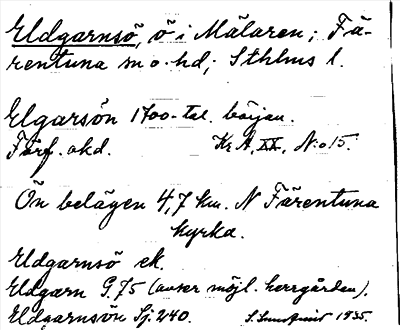 Eldgarnsö, ö i Mälaren; Fä-
rentuna sn o. hd; Sthlms l.
Elgarsön 1700-tal. början.
Förf. okd. Kr A, XX, N:o 15.
Ön belägen 4,7 km. N Färentuna
kyrka.
Eldgarnsö ek.
Eldgarn G. 75 (avser möjl. herrgården).
Eldgarnsön Sj. 240. 1935.